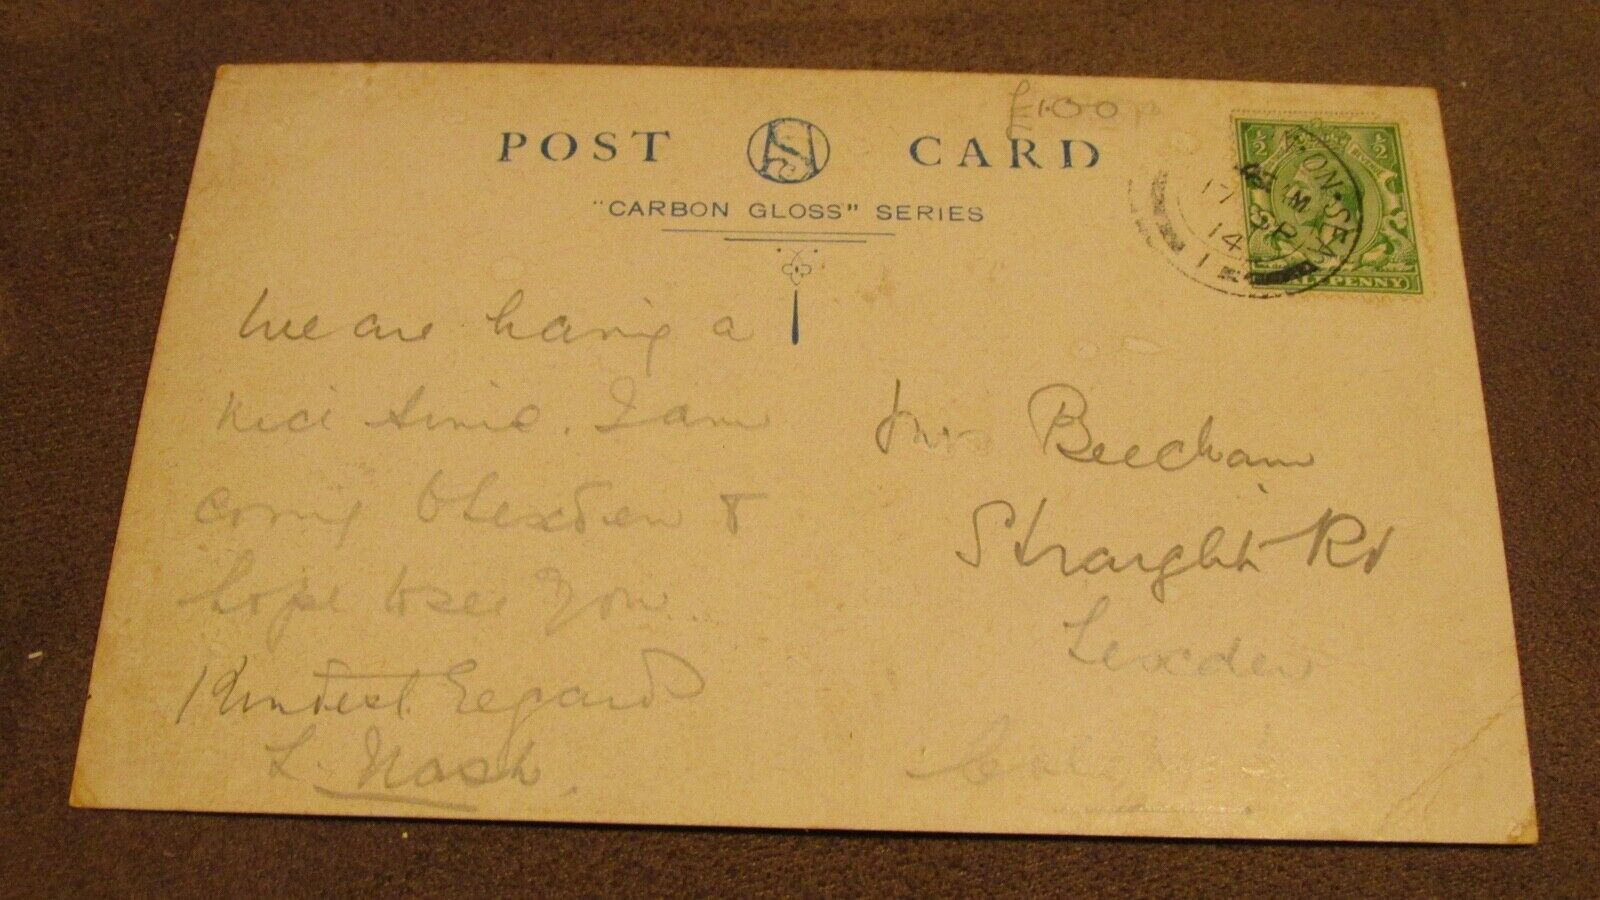 £1.00
POST CARD
"CARBON GLOSS" SERIES
½ ½
ON-SEA
17 SP
14
HALFPENNY
We are having a
nice time. I am
coming to Lexden &
hope to see you
Kindest Regards
L. Nash.
Mrs Beecham
Straight Rd
Lexden
Colchester